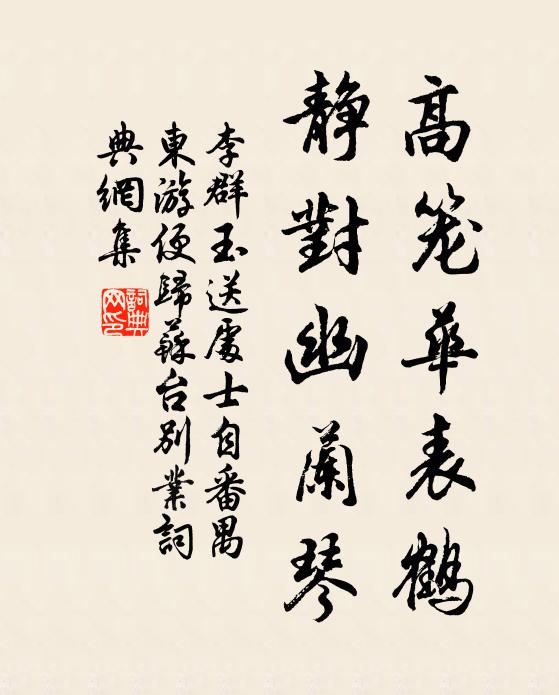 高笼華表鶴
靜對幽蘭琴
李群玉送處士自番禺
東游便歸蘇台別業詞
典網集
詞典網印